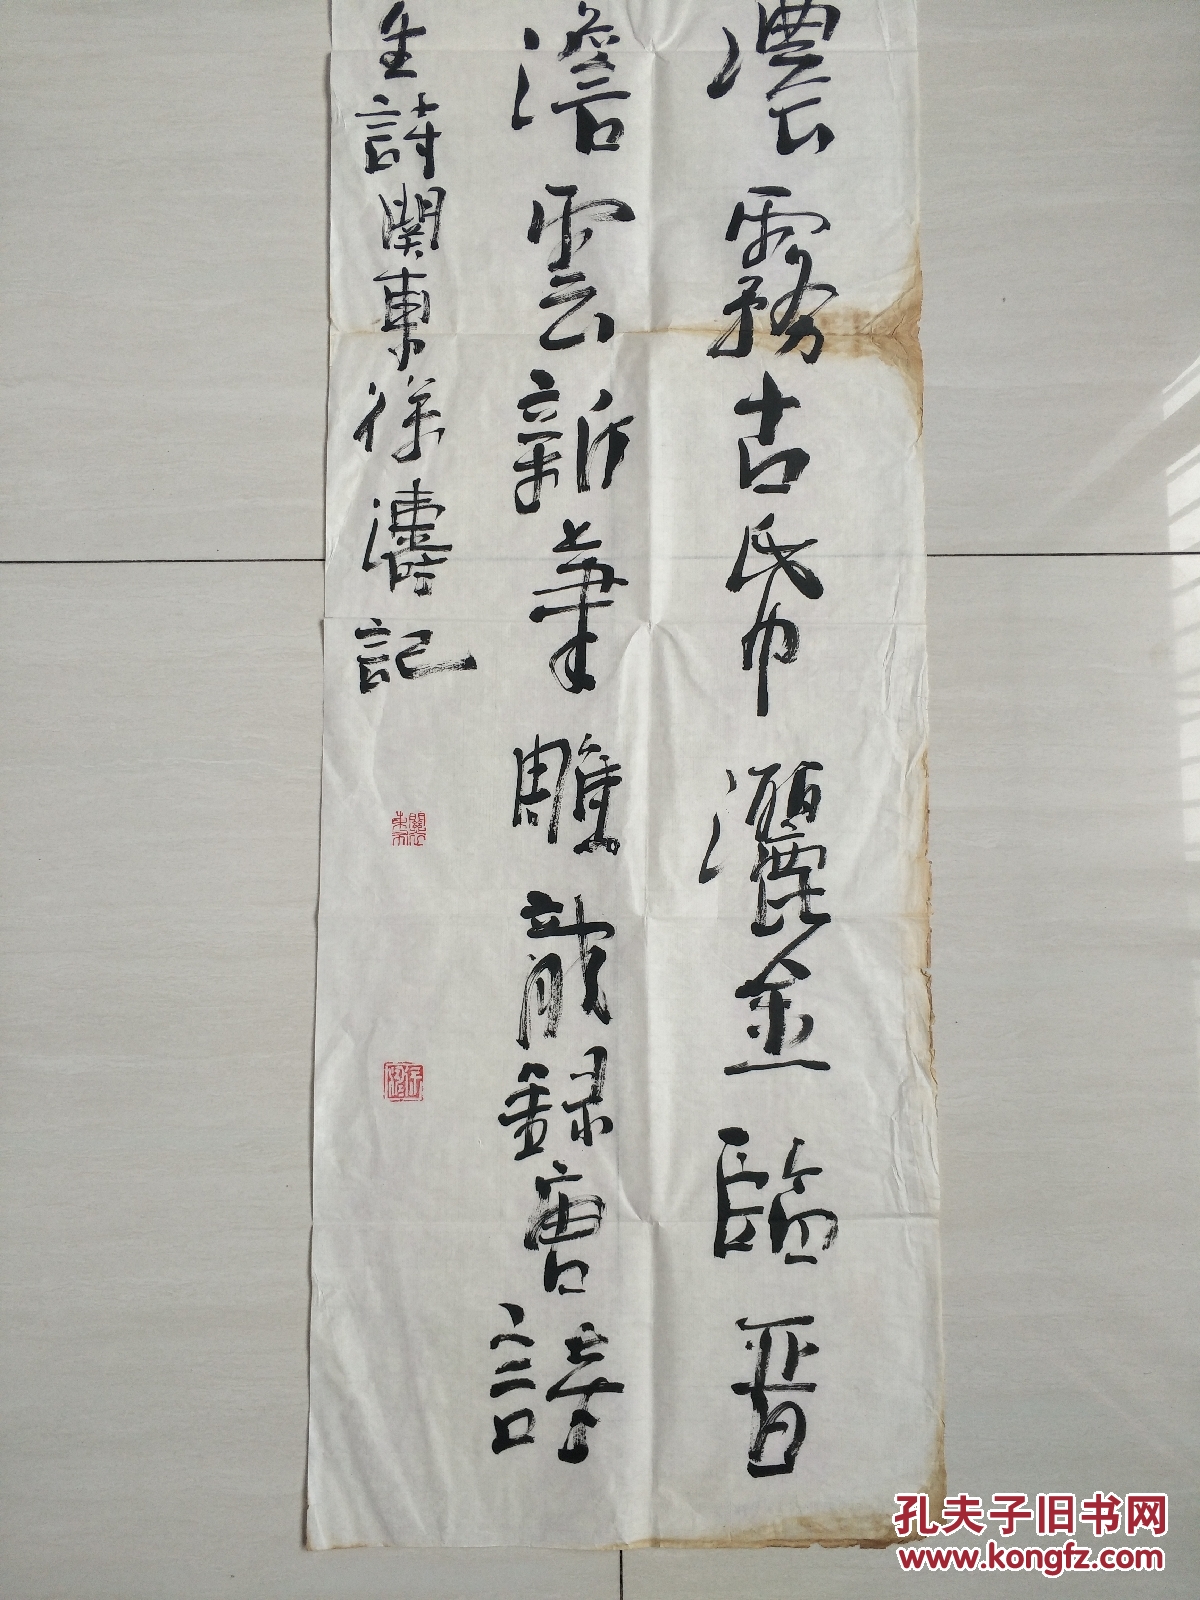 濃霧古帋灑金臨晋
澹雲新筆雕龍録唐詩
生詩関東徐濤記
孔夫子旧书网
www.kongfz.com